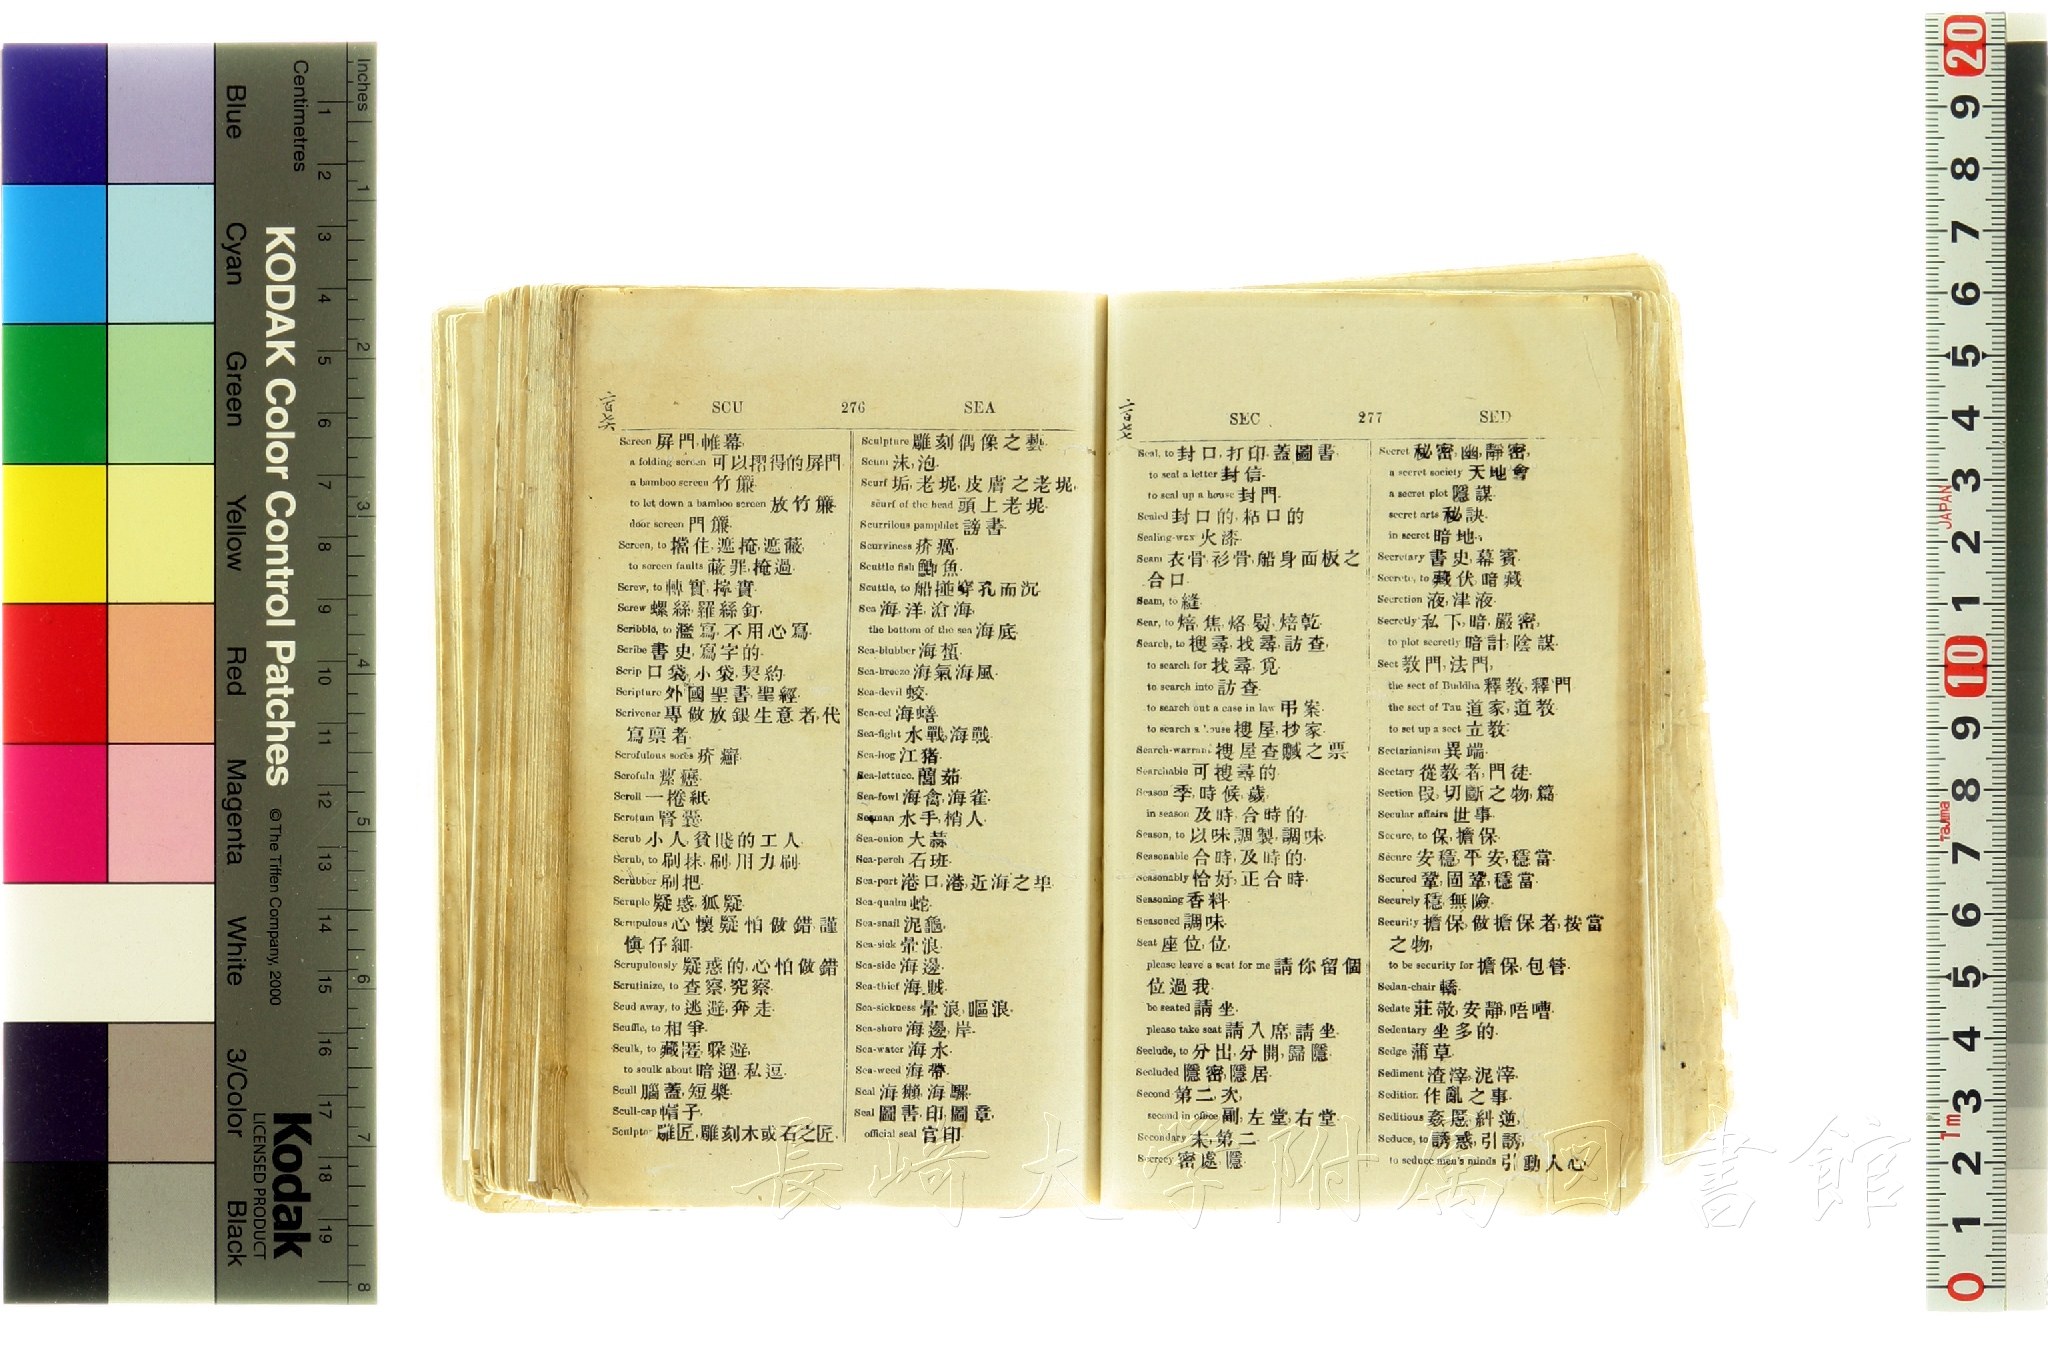 Inches
Centimetres
Blue
Cyan
Green
Yellow
Red
Magenta
White
3/Color
Black
KODAK Color Control Patches
© The Tiffen Company, 2000
Kodak
LICENSED PRODUCT
二百七六
SCU 276 SEA
Screen 屏門, 帷幕,
a folding screen 可以摺得的屏門
a bamboo screen 竹簾
to let down a bamboo screen 放竹簾
door screen 門簾
Screen, to 擋住, 遮掩, 遮蔽
to screen faults 蔽罪, 掩過
Screw, to 轉實, 擰實
Screw 螺絲, 羅絲釘
Scribble, to 濫寫, 不用心寫
Scribe 書史, 寫字的
Scrip 口袋, 小袋, 契約
Scripture 外國聖書, 聖經
Scrivener 專做放銀生意者, 代
寫稟者
Scrofulous sores 疥癬
Scrofula 瘰癧
Scroll 一捲紙
Scrotum 腎囊
Scrub 小人, 貧賤的工人
Scrub, to 刷, 抹刷, 用力刷
Scrubber 刷把
Scruple 疑惑, 狐疑
Scrupulous 心懷疑, 怕做錯, 謹
慎, 仔細
Scrupulously 疑惑的, 心怕做錯
Scrutinize, to 查察, 究察
Scud away, to 逃避, 奔走
Scuffle, to 相爭
Sculk, to 藏匿, 躲避,
to sculk about 暗遛, 私逗
Scull 腦蓋, 短槳
Scull-cap 帽子,
Sculptor 雕匠, 雕刻木或石之匠
Sculpture 雕刻偶像之藝
Scum 沫, 泡
Scurf 垢, 老坭, 皮膚之老坭,
scurf of the head 頭上老坭
Scurrilous pamphlet 謗書
Scurviness 疥癘
Scuttle fish 魚
Scuttle, to 船撞穿孔而沉
Sea 海, 洋, 滄海
the bottom of the sea 海底
Sea-blubber 海蜇
Sea-breeze 海氣, 海風
Sea-devil 蛟
Sea-eel 海蟮
Sea-fight 水戰, 海戰
Sea-hog 江猪
Sea-lettuce 茹
Sea-fowl 海禽, 海雀
Seaman 水手, 梢人
Sea-onion 大蒜
Sea-perch 石班
Sea-port 港口, 港, 近海之埠
Sea-qualm 蛇
Sea-snail 泥龜
Sea-sick 暈浪
Sea-side 海邊
Sea-thief 海賊
Sea-sickness 暈浪, 嘔浪
Sea-shore 海邊, 岸
Sea-water 海水
Sea-weed 海帶
Seal 海獺, 海騾
Seal 圖書, 印, 圖章,
official seal 官印
二百七七
SEC 277 SED
Seal, to 封口, 打印, 蓋圖書
to seal a letter 封信
to seal up a house 封門
Sealed 封口的, 粘口的
Sealing-wax 火漆
Seam 衣骨, 衫骨, 船身面板之
合口
Seam, to 縫
Sear, to 焙, 焦, 烙, 熨, 焙乾
Search, to 搜尋, 找尋, 訪查,
to search for 找尋, 覓
to search into 訪查
to search out a case in law 弔案
to search a house 搜屋, 抄家
Search-warrant 搜屋查贓之票
Searchable 可搜尋的
Season 季, 時候, 歲
in season 及時, 合時的
Season, to 以味調製, 調味
Seasonable 合時, 及時的
Seasonably 恰好, 正合時
Seasoning 香料
Seasoned 調味
Seat 座位, 位
please leave a seat for me 請你留個
位過我
be seated 請坐
please take seat 請入席, 請坐
Seclude, to 分出, 分開, 歸隱
Secluded 隱密, 隱居
Second 第二, 次,
second in office 副, 左堂, 右堂
Secondary 末, 第二
Secrecy 密處, 隱
Secret 秘密, 幽, 靜密,
a secret society 天地會
a secret plot 隱謀
secret arts 秘訣
in secret 暗地
Secretary 書史, 幕賓
Secrete, to 藏伏, 暗藏
Secretion 液, 津液
Secretly 私下, 暗, 嚴密,
to plot secretly 暗計, 陰謀
Sect 教門, 法門,
the sect of Buddha 釋教, 釋門
the sect of Tau 道家, 道教
to set up a sect 立教
Sectarianism 異端
Sectary 從教者, 門徒
Section 段, 切斷之物, 篇
Secular affairs 世事
Secure, to 保, 擔保
Secure 安穩, 平安, 穩當
Secured 鞏固, 鞏, 穩當
Securely 穩, 無險
Security 擔保, 做擔保者, 按當
之物,
to be security for 擔保, 包管
Sedan-chair 轎
Sedate 莊敬, 安靜, 唔嘈
Sedentary 坐多的
Sedge 蒲草
Sediment 渣滓, 泥滓
Sedition 作亂之事
Seditious 姦慝, 糾逆,
Seduce, to 誘惑, 引誘,
to seduce men's minds 引動人心
長崎大学附属図書館
JAPAN
Tajima
1m